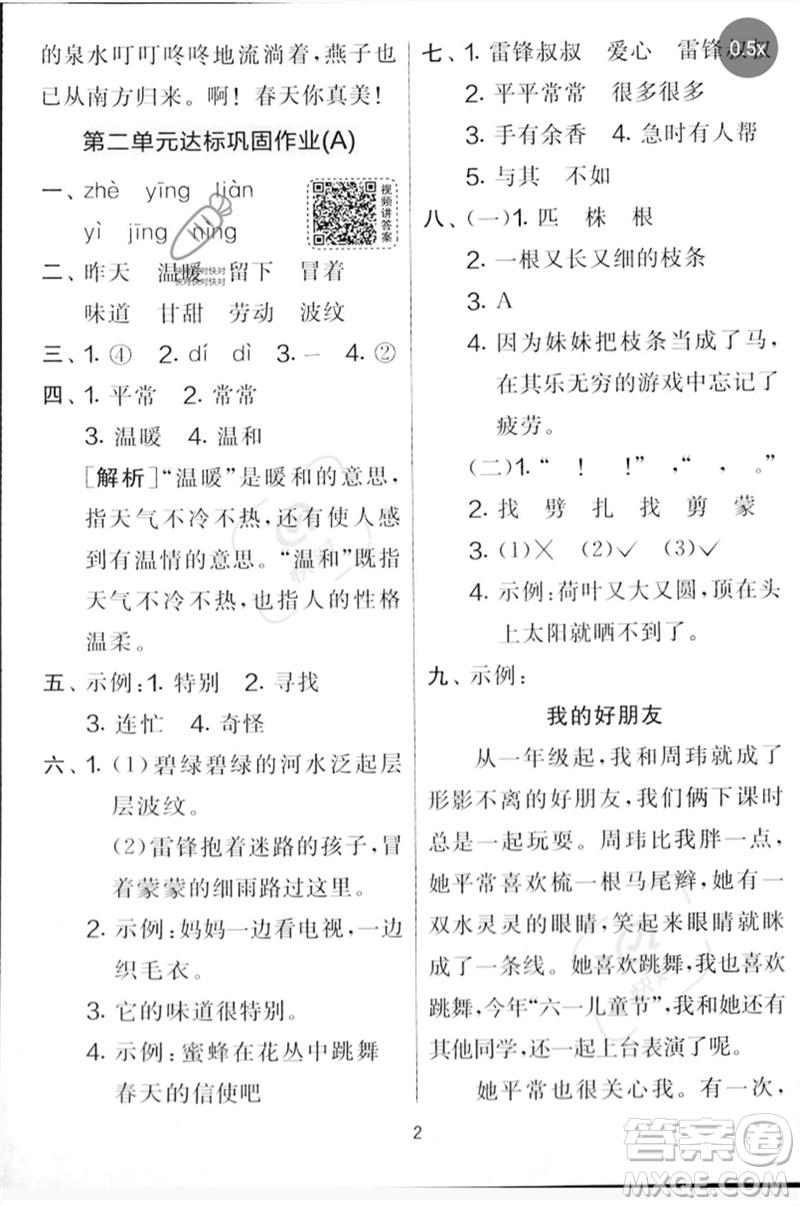 的泉水叮叮咚咚地流淌着，燕子也
已从南方归来。啊！春天你真美！
第二单元达标巩固作业(A)
一、zhè yīng liàn
yì jīng níng
视频讲答案
二、昨天 温暖 留下 冒着
快对快对快对
快对快对快对
味道 甘甜 劳动 波纹
三、1. ④ 2. dí dì 3. 一 4. ②
四、1. 平常 2. 常常
3. 温暖 4. 温和
[解析]“温暖”是暖和的意思，
指天气不冷不热，还有使人感
到有温情的意思。“温和”既指
天气不冷不热，也指人的性格
温柔。
五、示例：1. 特别 2. 寻找
3. 连忙 4. 奇怪
六、1.（1）碧绿碧绿的河水泛起层
层波纹。
（2）雷锋抱着迷路的孩子，冒
着蒙蒙的细雨路过这里。
2. 示例：妈妈一边看电视，一边
织毛衣。
3. 它的味道很特别。
4. 示例：蜜蜂在花丛中跳舞
春天的信使吧
七、1. 雷锋叔叔 爱心 雷锋叔叔
0.5x
2. 平平常常 很多很多
3. 手有余香 4. 急时有人帮
5. 与其 不如
八、（一）1. 匹 株 根
2. 一根又长又细的枝条
3. A
4. 因为妹妹把枝条当成了马，
在其乐无穷的游戏中忘记了
疲劳。
（二）1.“ ！ ！”，“ ， 。”
2. 找 劈 扎 找 剪 蒙
3. (1)╳ (2)✓ (3)✓
4. 示例：荷叶又大又圆，顶在头
上太阳就晒不到了。
九、示例：
我的好朋友
从一年级起，我和周玮就成了
形影不离的好朋友，我们俩下课时
总是一起玩耍。周玮比我胖一点，
她平常喜欢梳一根马尾辫，有一
双水灵灵的眼睛，笑起来眼睛就眯
成了一条线。她喜欢跳舞，最爱民族
跳舞，今年“六一儿童节”，我和她还有
其他同学，还一起上台表演了呢。
她平常也很关心我。有一次，
2
答案卷
MXQE.COM